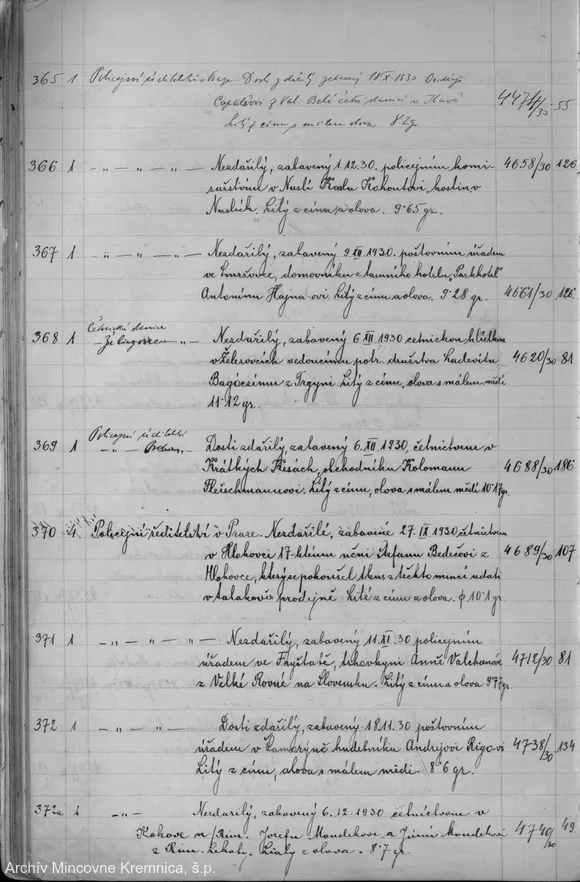 365 1 Policejní ředitelství v Praze Dosti zdařilý zabavený 18.X.1930 Ondřeji
z Val. Belé četn. stanicí v
Litý z cínu s málem olova 8·2 gr. 4474/30 55
366 1 — „ — „ — „ — Nezdařilý, zabavený 1.12.30. policejním komi- 4658/30 126
sařstvím v Nuslí Karlu Kohoutovi, hostin. v
Nuslích. Litý z cínu a olova. 9·65 gr.
367 1 — „ — „ — „ — Nezdařilý, zabavený 9.XII.1930. poštovním úřadem
ve Smržovce, domovníku z tamního hotelu „Parkhotel"
Antonínu Hajna-ovi. Litý z cínu a olova. 9·28 gr. 4661/30 126.
368 1 Četnická stanice
Želiezovce „ — Nezdařilý, zabavený 6 XII 1930 četnickou hlídkou
v Železovcích vedoucímu potr. družstva Ludevítu 4620/30 81
Bagácsimu z Trgyni Litý z cínu, olova s málem mědi
11·12 gr.
369 1 Policejní ředitelství
— „ — Praha „ Dosti zdařilý, zabavený 6.XII 1930, četnictvem v
Krátkých Kesách, obchodníku Kolomanu 4688/30 186
Fleischmannovi. Litý z cínu, olova s málem mědi 10·17 gr.
370 4. Policejní ředitelství v Praze. Nezdařilé, zabavené 27.IX 1930 četnictvem
v Hlohovci 17-letému učni Štefanu Bedečovi z 4689/30 107
Hlohovce, který se pokoušel 1 kus z těchto mincí udati
v tabákové prodejně Lité z cínu a olova. ϕ 10·1 gr.
371 1 — „ — „ — „ — „ — Nezdařilý, zabavený 11.XI.30 policejním
úřadem ve Fryštátě, Anně Valchanové 4712/30 81
z Velké Rovné na Slovensku. Litý z cínu a olova. 9·77 gr.
372 1 — „ — „ — „ — Dosti zdařilý, zabavený 18.11.30 poštovním
úřadem v hudebníku Andrejovi Rigo-vi 4738/30 134
Litý z cínu, olova s málem mědi. 8·6 gr.
372a 1 — „ — Nezdařilý, zabavený 6.12.1930 četnictvem v
Kokave n/Rim. Jozefu Mondekovi a Mondekovi 4740/30 49
z Rim. Lehoty. Liaty z olova. 8·7 gr.
Archív Mincovne Kremnica, š.p.